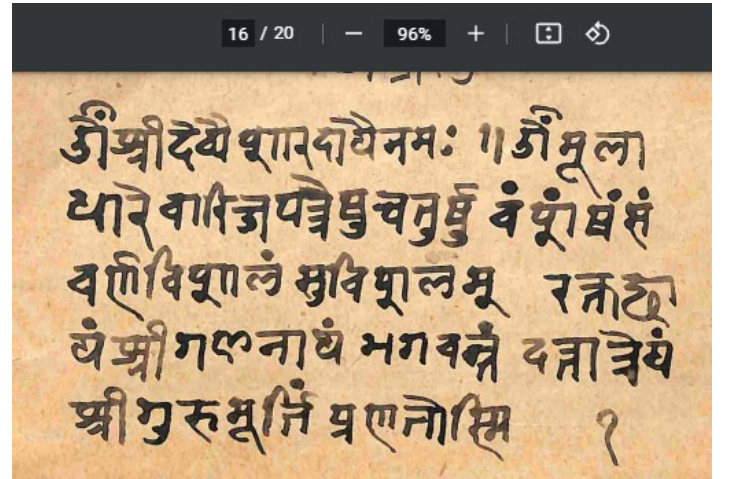 16 / 20 − 96% +
ॐ श्रीदेव्यै शारदायैनमः ॥ ॐ मूला
धारे वारिजपत्रेषुचतुर्षु वं शं षं सं
वर्णविशालं सुविशालम् रक्तच्छा
यं श्रीगणनाथं भगवन्तं दत्तात्रेयं
श्रीगुरुमूर्तिं प्रणतोस्मि १